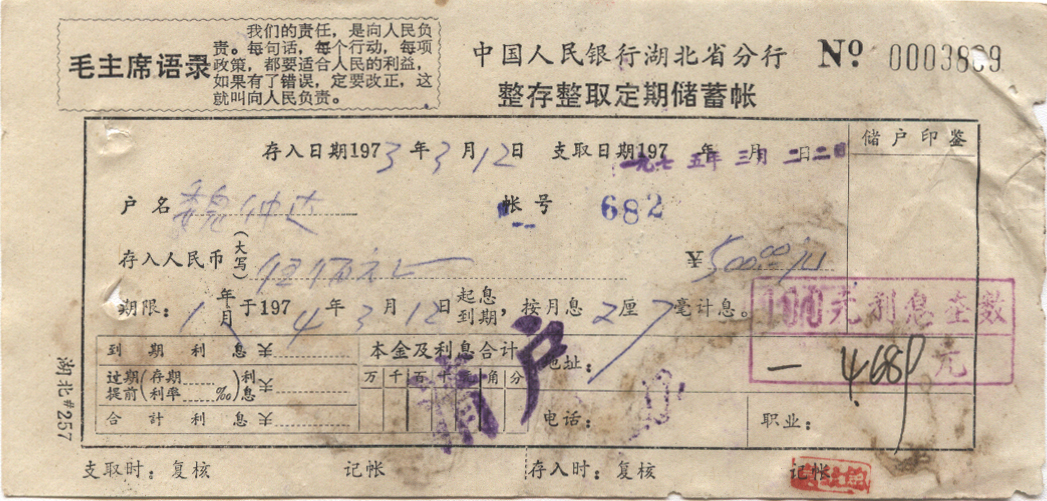 毛主席语录
我们的责任，是向人民负
责。每句话，每个行动，每项
政策，都要适合人民的利益，
如果有了错误，定要改正，这
就叫向人民负责。
中国人民银行湖北省分行 № 0003899
整存整取定期储蓄帐
储户印鉴
存入日期1973年3月12日 支取日期197 年 月 日
一九七五年三月二二日
户名 魏仲达 帐号 682
存入人民币(大写) 伍佰元 ¥500.00
期限：1年月于1974年3月12日起息到期，按月息2厘7毫计息。
100元利息查数
4.689元
到期利息¥
本金及利息合计
地址：
过期提前(存期利率 ‰)利息¥
万千百十元角分
合计利息¥
电话：
职业：
清户
湖北#257
支取时：复核 记帐 存入时：复核 记帐